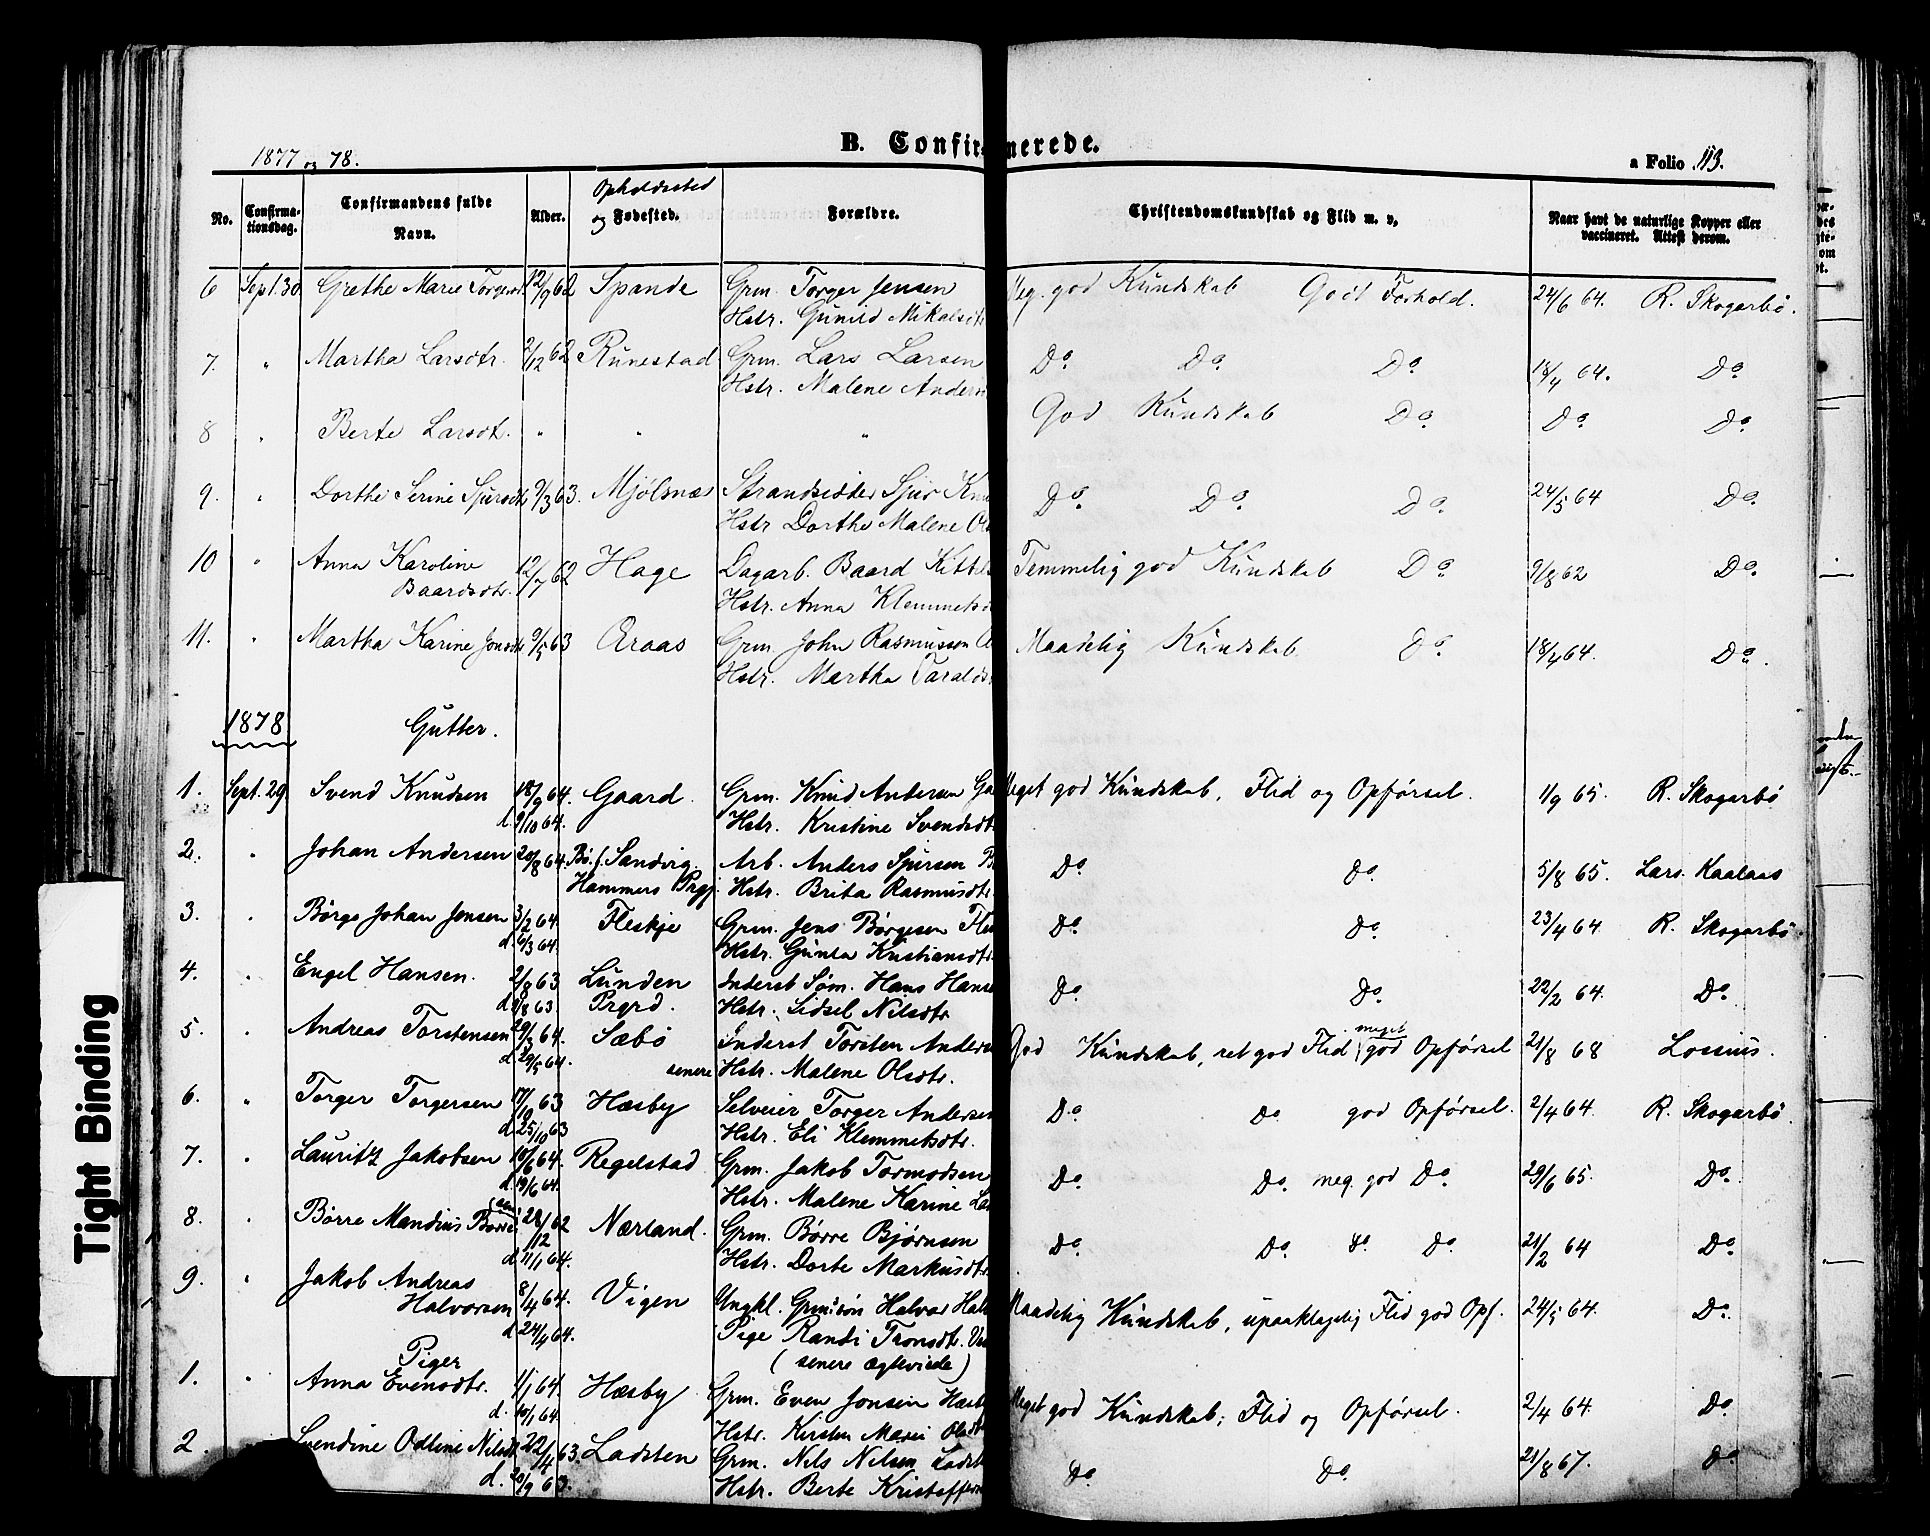 B. Confirmerede.
1877 og 78.
a Folio 113.
No. Confirmationsdag. Confirmandens fulde Navn. Alder. Opholdssted og Fødested. Forældre. Christendomskundskab og Flid m. v, Naar havt de naturlige Kopper eller vaccineret. Attest derom.
6 Sept. 30 Grethe Marie Torgersd. 12/9 62 Spande Grm. Torger Jensen Meg. god Kundskab Godt Forhold. 24/6 64. R. Skogarbø.
Hstr. Gunild Mikalsdt
7. " Martha Larsdtr. 2/12 62 Runestad Grm. Lars Larsen Do. Do. Do. 18/4 64. Do.
Hstr. Malene Anders
8 " Berte Larsdt. " " " God Kundskab Do. Do. Do.
9. " Dorthe Serine Sjursdt 9/3 63. Mjølsnæs Strandsidder Sjur Knu Do. Do. Do. 24/5 64 Do.
Hstr Dorthe Malene Ol
10 " Anna Karoline 12/7 62 Hage Dagarb. Baard Kittels Temmelig god Kundskab Do. 9/8 62 Do.
Baardsdtr. Hstr. Anna Klemmetsd
11. " Martha Karine Jonsdt 9/5 63 Araas Grm. John Rasmussen A Maadelig Kundskab Do. 18/4 64. Do.
Hstr. Martha Taralds
1878 Gutter.
1. Sept. 29 Svend Knudsen 18/9 64. Gaard. Grm. Knud Andersen Ga Meget god Kundskab, Flid og Opførsel. 1/9 65. R. Skogarbø
d. 9/10 64. Hstr. Kristine Svendsdt
2. " Johan Andersen 20/8 64. Bø. f. Sandvig. Arb. Anders Sjursen B Do. Do. 5/8 65. Lars Kaalaas
Hammers Prgj. Hstr. Brita Rasmusdtr.
3. " Børge Johan Jensen 3/2 64. Fleskje Grm. Jens Børgesen Fles Do. Do. 23/4 64. R. Skogarbø
d. 6/3 64. Hstr. Gunla Kristiansdtr.
4. " Engel Hansen. 2/8 63 Lunden Inderst Søm. Hans Hanse Do. Do. 22/2 64. Do.
d. 9/8 63 Prgrd. Hstr. Sidsel Nilsdtr
5. " Andreas Torstensen 29/3 64. Sæbø Inderst Torsten Anders God Kundskab, ret god Flid meget god Opførsel 21/8 68 Lossius.
d. 29/5 64. senere Hstr. Malene Olsdtr.
6. " Torger Torgersen 17/10 63 Hæsby Selveier Torger Andersen Do. Do. god Opførsel. 2/4 64. R. Skogarbø
d. 25/10 63 Hstr. Eli Klemmetsdtr.
7. " Lauritz Jakobsen 10/6 64. Regelstad Grm. Jakob Tormodsen Do. Do. meg. god Do. 29/6 65. Do.
d. 19/6 64. Hstr. Malene Karine La
8. " Børre Mandius Børre(sen) 28/12 62 Nærland. Grm. Børre Bjørnsen Do. Do. do. Do. 21/2 64 Do.
d. 11/1 64. Hstr. Dorte Markusdtr
9. " Jakob Andreas 8/4 64. Vigen Ungkl. Grmssøn Halvor Hal Maadelig Kundskab, upaaklagelig Flid god Opf. 24/5 64. Do.
Halvorsen d. 24/4 64. Pige Randi Tronsdtr. V
(senere ægteviede)
Piger
1. " Anna Evensdtr. 1/1 64. Hæsby Grm. Even Jonsen Hæsby Meget god Kundskab; Flid og Opførsel. 2/4 64. Do.
d. 10/1 64. Hstr. Kirsten Marie Olsdt
2. Svendine Odline Nilsdt 22/4 63. Ladsten Grm. Nils Nilsen Ladst Do. Do. 21/8 67. Do.
d. 20/9 63. Hstr. Berte Kristoffers
Tight Binding